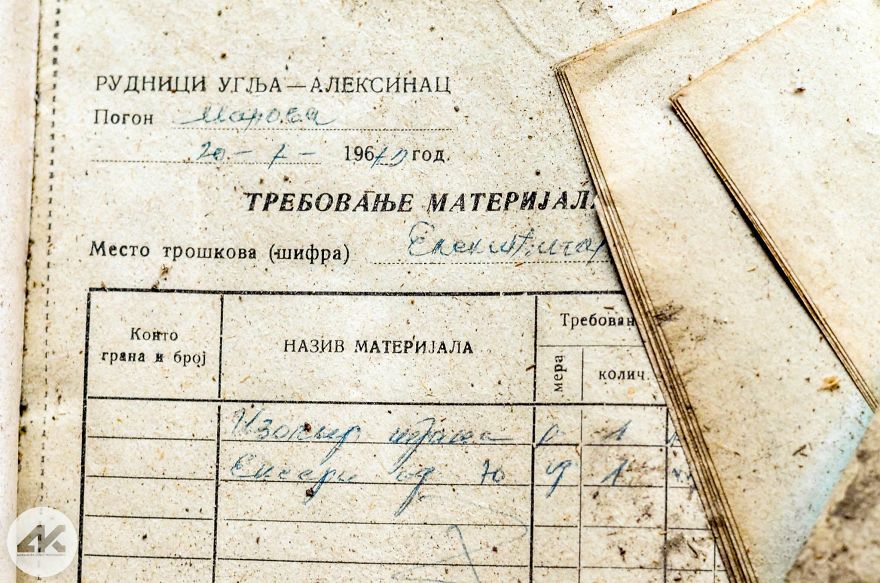 РУДНИЦИ УГЉА — АЛЕКСИНАЦ
Погон Морава
20 - 7 - 1967 год.
ТРЕБОВАЊЕ МАТЕРИЈАЛ
Место трошкова (шифра)
Конто
грана и број
НАЗИВ МАТЕРИЈАЛА
Требовањ
мера
колич.
Изолир трака 1
Ексери од 10 1
AK